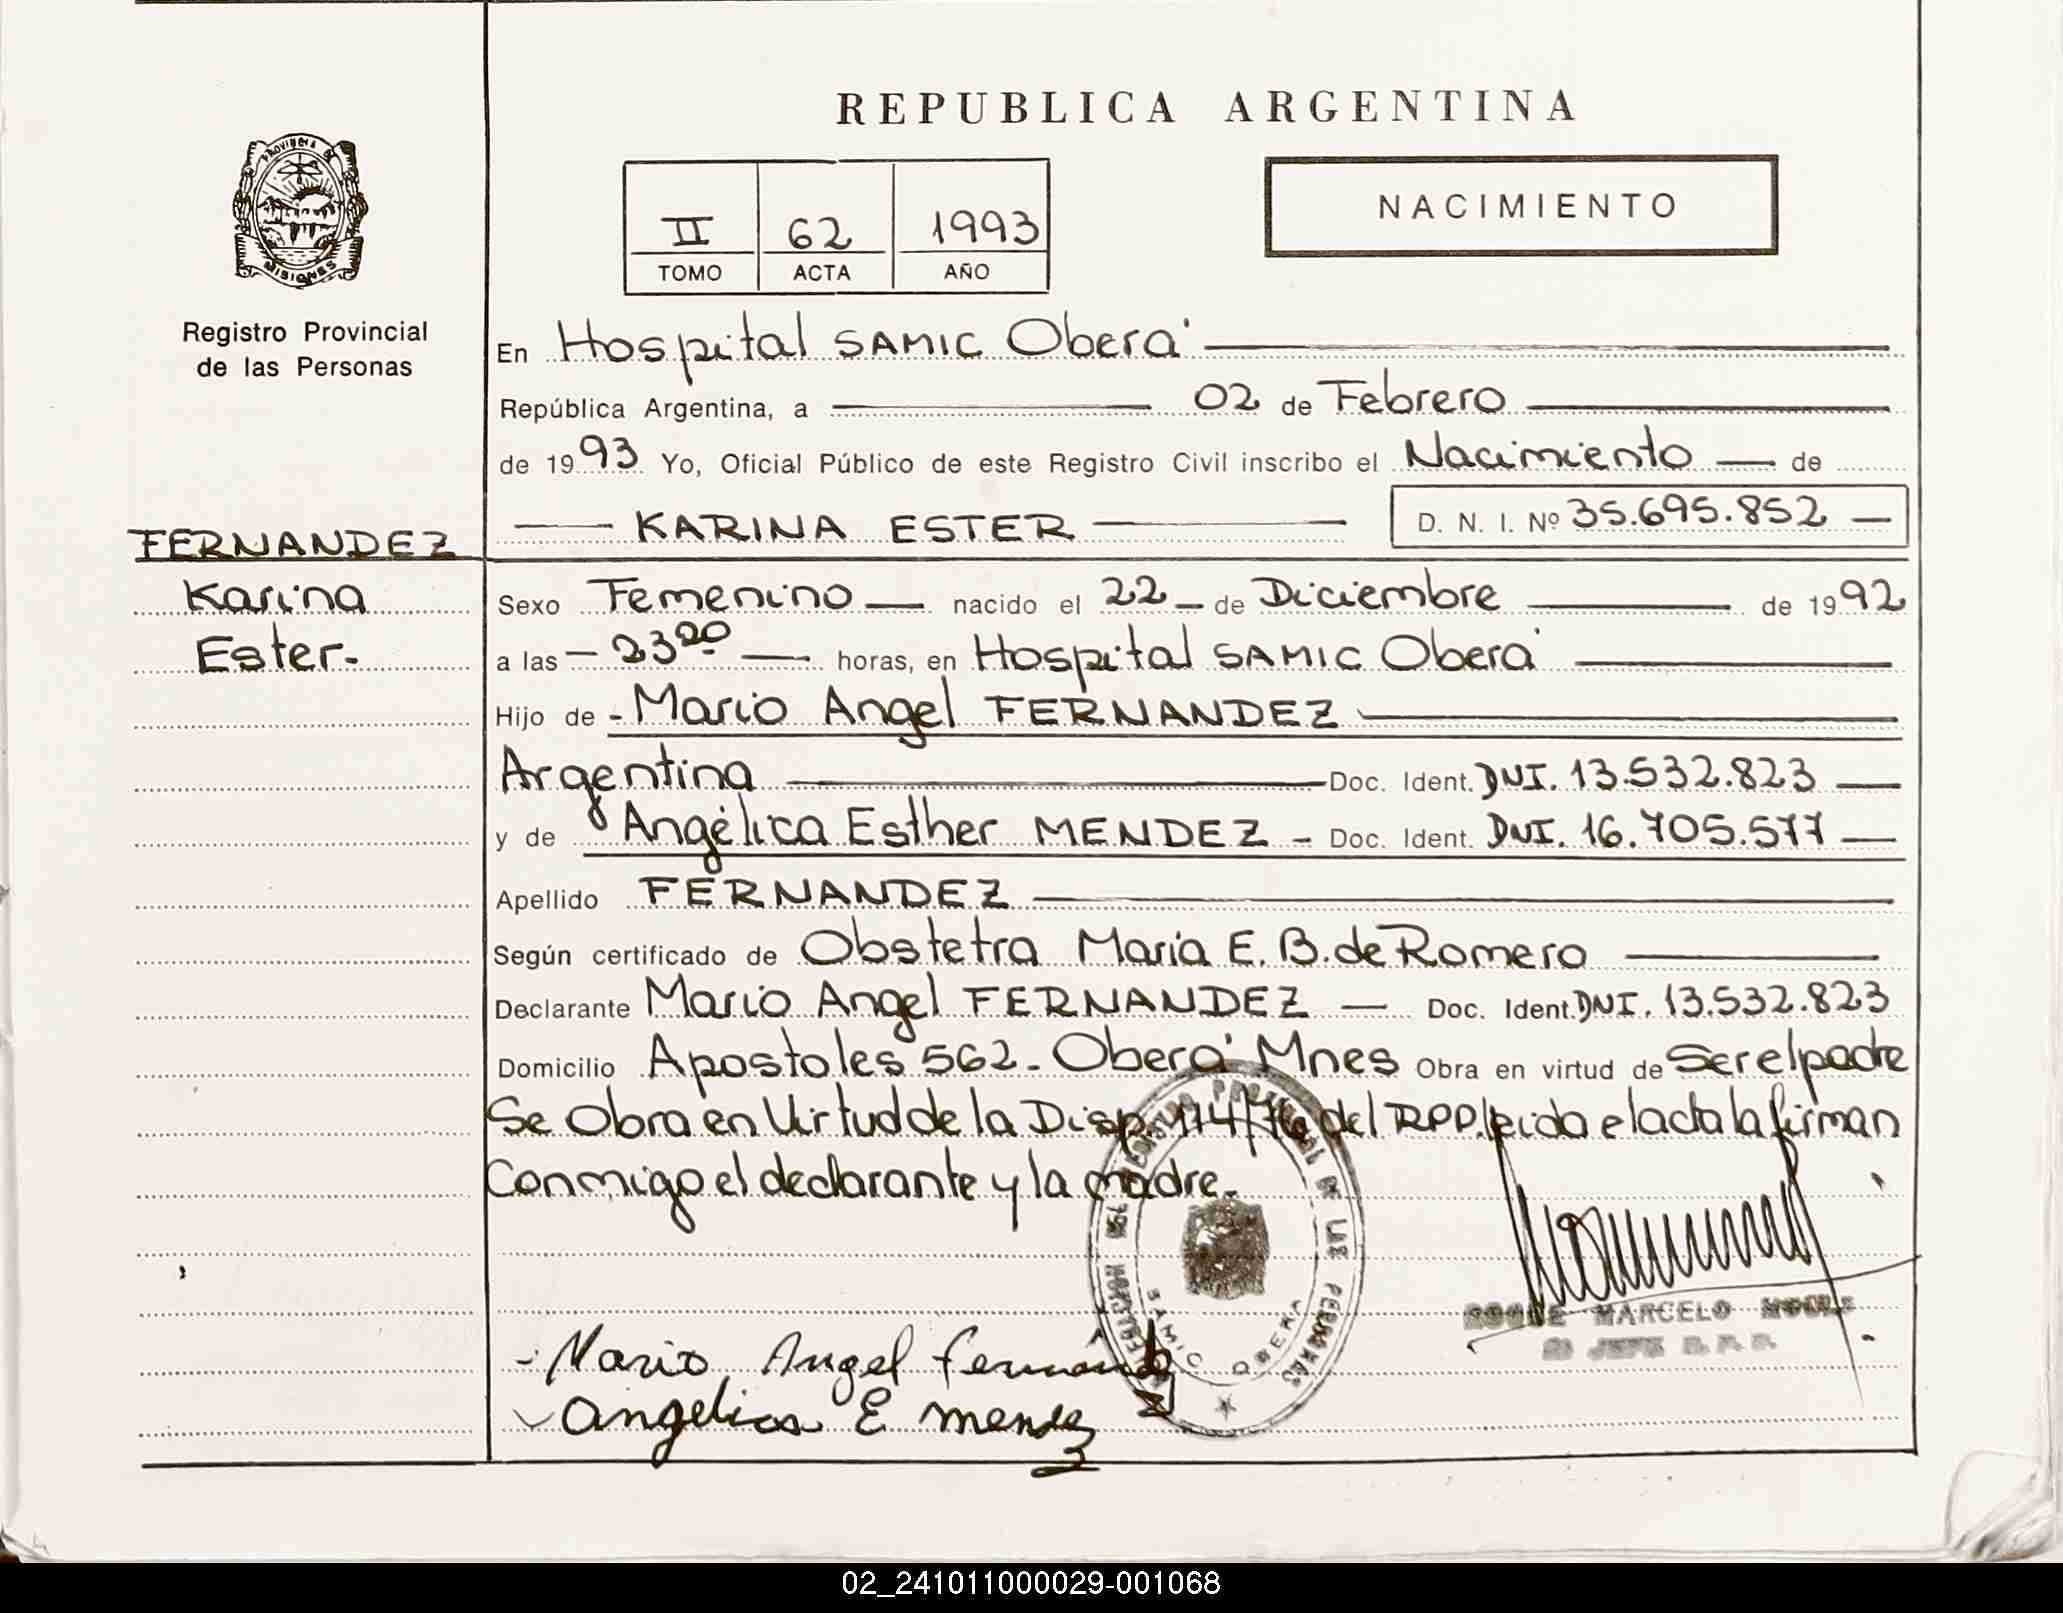 REPUBLICA ARGENTINA
PROVINCIA DE
MISIONES
Registro Provincial
de las Personas
II 62 1993
TOMO ACTA AÑO
NACIMIENTO
En Hospital SAMIC Oberá
República Argentina, a 02 de Febrero
de 1993 Yo, Oficial Público de este Registro Civil inscribo el Nacimiento — de
KARINA ESTER D. N. I. Nº 35.695.852 —
FERNANDEZ
Karina
Ester.-
Sexo Femenino — nacido el 22 — de Diciembre — de 1992
a las — 23 20 — horas, en Hospital SAMIC Oberá
Hijo de - Mario Angel FERNANDEZ
Argentina — Doc. Ident. DNI. 13.532.823 —
y de Angélica Esther MENDEZ - Doc. Ident. DNI. 16.705.577 —
Apellido FERNANDEZ
Según certificado de Obstetra María E. B. de Romero
Declarante Mario Angel FERNANDEZ — Doc. Ident. DNI. 13.532.823
Domicilio Apostoles 562 - Oberá Mnes Obra en virtud de Ser el padre
Se Obra en Virtud de la Disp. 114/76 del RPP. leida el acta la firman
Conmigo el declarante y la madre.
REGISTRO PROVINCIAL DE LAS PERSONAS
SAMIC OBERA
MARCELO
JEFE R. P. P.
- Mario Angel Fernandez
angelica E mendez
02_241011000029-001068